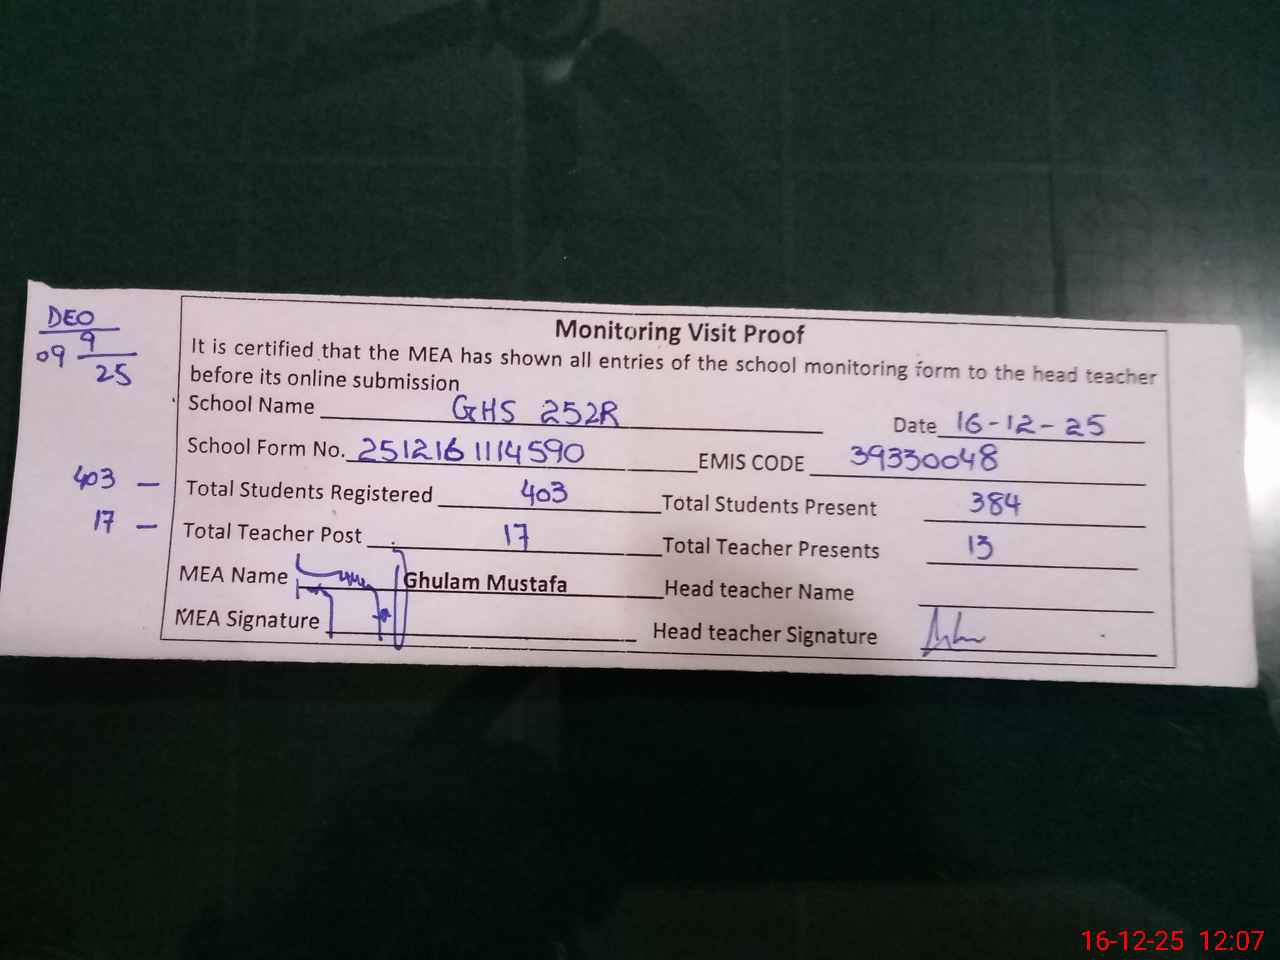 DEO
09 9
25
403 –
17 –
Monitoring Visit Proof
It is certified that the MEA has shown all entries of the school monitoring form to the head teacher
before its online submission
School Name GHS 252R Date 16-12-25
School Form No. 2512161114590 EMIS CODE 39330048
Total Students Registered 403 Total Students Present 384
Total Teacher Post 17 Total Teacher Presents 13
MEA Name Ghulam Mustafa Head teacher Name
MEA Signature Head teacher Signature
16-12-25 12:07